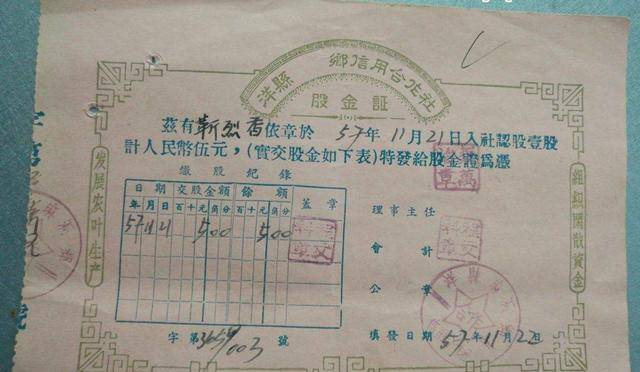 洋縣 鄉信用合作社
股金証
茲有靳烈香依章於57年11月21日入社認股壹股
計人民幣伍元,(實交股金如下表)特發給股金證爲憑
繳股紀錄
日期 交股金額 餘額 蓋章
年 月 日 百 十 元 角 分 百 十 元 角 分
57 11 21 5 00 5 00
理事主任
會計
公章
字第 號
填發日期 57年11月22日
发展农叶生产
組織閒散資金